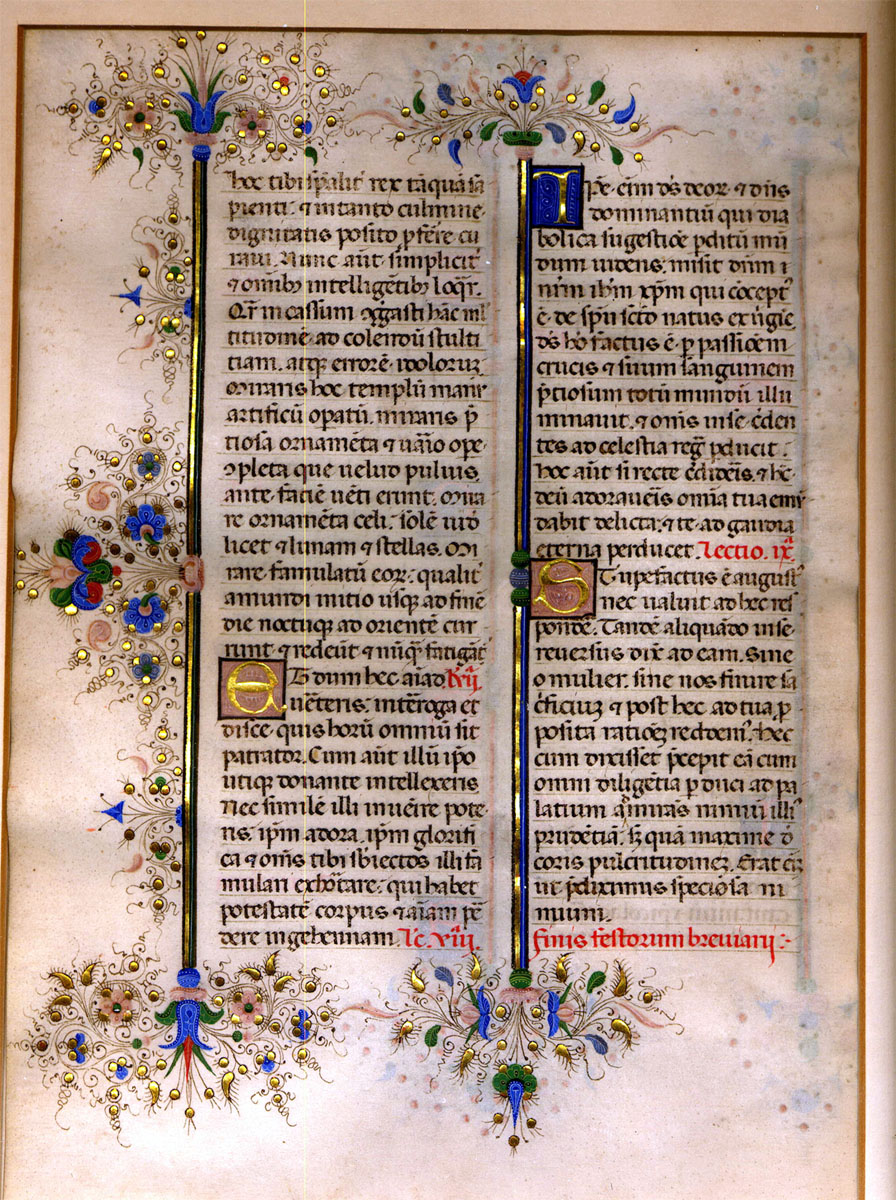 hoc tibi spālit̄ rex tāquā sa
pienti: ⁊ in tanto culmine
dignitatis posito ꝓferre cu
raui. Nunc aūt simplicit̄
⁊ omībꝰ intelligētibꝰ loq̄r.
Qr̄ in cassum ↄgregasti hāc ml̄
titudinē ad colendū stulti
tiam. atqꝫ errorē ydoloruꝫ
Miraris hoc templū manu
artificū opatū. miraris p̄
tiosa ornamēta ⁊ uāio ope
ↄpleta que uelud puluis
ante faciē uēti erunt. Mira
re ornamēta celi: solē uid
licet ⁊ lunam ⁊ stellas. Mi
rare famulatū eorꝫ: qualit̄
a mundi initio usqꝫ ad finē
die noctuqꝫ ad orientē cur
runt ⁊ redeūt ⁊ nūqꝫ fatigāt̄
Et dum hec aīad
uerteris: interroga et
disce quis horū omniū sit
patrator. Cum aūt illū ipō
utiqꝫ donante intellexeris
nec similē illi inuenire pote
ris. ipm̄ adora. ipm̄ glorifi
ca ⁊ omīs tibi sb̄iectos illi fa
mulari exhortare: qui habet
potestatē corpus ⁊ aīam per
dere in gehennam. Lc. viii.
Ipē eīm dꝰ deorꝫ ⁊ dn̄s
dominantiū qui dia
bolica sugestiōe ꝑditū mū
dum uidens: misit dn̄m
nr̄m ihm̄ xp̄m qui cōcept̄ꝰ
ē de spū scō natus ex ùgīe
dꝰ hō factus ē ꝑ passiōem
crucis ⁊ suum sanguinem
p̄tiosum totū mundū illu
minauit. ⁊ omīs in se cēden
tes ad celestia regn̄ ꝑducit:
hoc aūt si recte cēdidēis. ⁊ he
deū adorauēis omīa tua eīm
dabit delicta: ⁊ te ad gaudia
eterna perducet. Lectio. ix.
Stupefactus ē augustꝰ
nec ualuit ad hec res
pondē. Tandē aliquādo in se
reuersus dix̄ ad eam. Sine
o mulier. sine nos finire sa
c̄ficiuꝫ ⁊ post hec ad tua ꝓ
posita ratiōeꝫ reddem̄ꝰ. Hec
cum dixisset p̄cepit eā cum
omni diligētia ꝑduci ad pa
latium āmirās nimiū illīꝰ
prudētiā: sꝫ quā maxime d̄
coris pulcritudineꝫ. Erat eīꝫ
ut p̄diximus speciosa ni
mium.
Finis festorum breuiarii :-